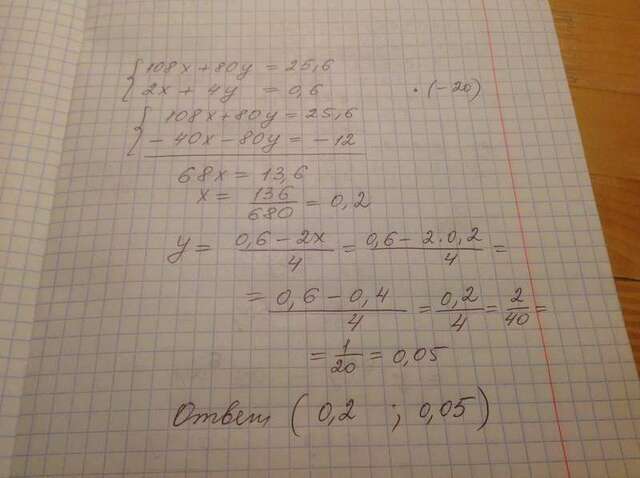 108x + 80y = 25,6
2x + 4y = 0,6 · (-20)
108x + 80y = 25,6
- 40x - 80y = -12
68x = 13,6
x = 136/680 = 0,2
y = (0,6 - 2x)/4 = (0,6 - 2·0,2)/4 =
= (0,6 - 0,4)/4 = 0,2/4 = 2/40 =
= 1/20 = 0,05
Ответ (0,2 ; 0,05)